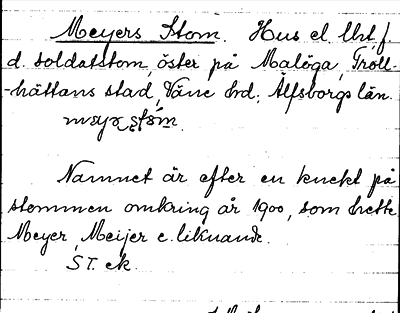 Meyers Stom. Hus el. lht, f.
d. soldatstom, öster på Malöga, Troll-
-hättans stad, Väne hd, Älfsborgs län.
Namnet är efter en knekt på
stommen omkring år 1900, som hette
Meyer, Meijer e. liknande.
ST. ek.